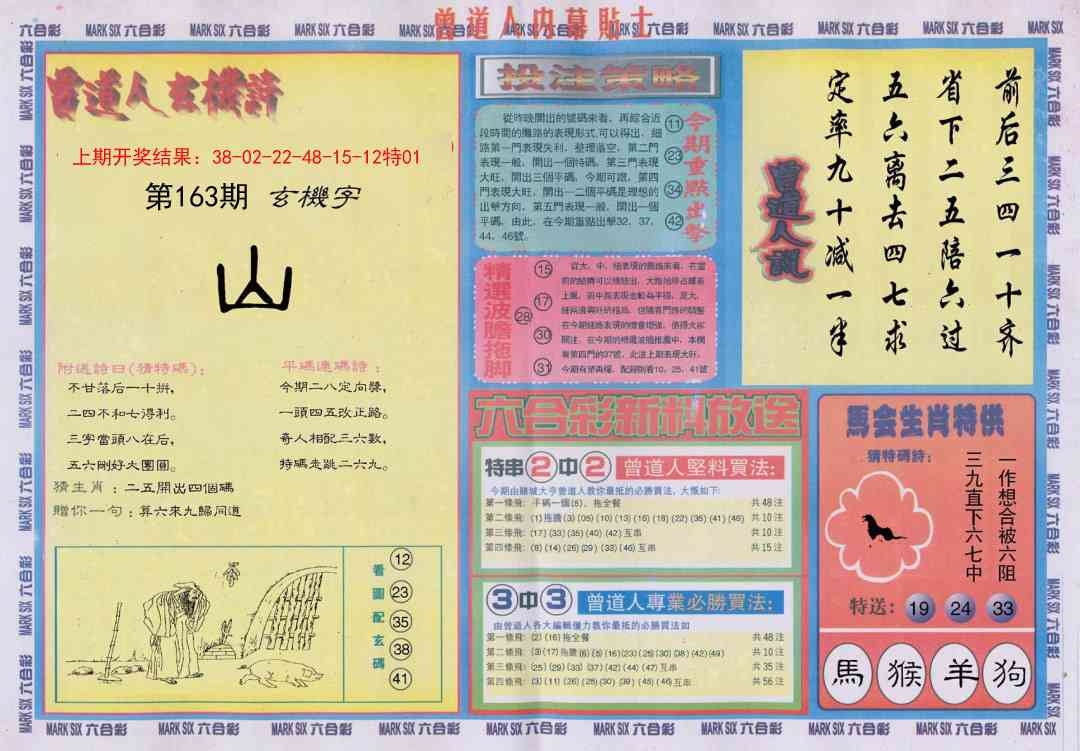 曾道人内幕貼士
六合彩 MARK SIX 六合彩 MARK SIX 六合彩 MARK SIX 六合彩 MARK SIX 六合彩
曾道人玄機詩
上期开奖结果：38-02-22-48-15-12特01
第163期 玄機字
山
附送詩曰(猜特碼)：
不甘落后一十拼，
二四不和七得利。
三字當頭八在后，
五六剛好大團圓。
平碼連碼詩：
今期二八定向聲，
一頭四五改正路。
奇人相配三六數，
特碼走跳二六九。
猜生肖：二五開出四個碼
贈你一句：算六來九歸问道
看圖配玄碼
12
23
35
38
41
投注策略
從昨晚開出的號碼來看，再綜合近
段時間的攤路的表現形式，可以得出，細
路第一門表現失利，整理落空，第二門
表現一般，開出一個特碼，第三門表現
大旺，開出三個平碼，今期可跟，第四
門表現大旺，開出一二個平碼是理想的
出擊方向，第五門表現一般，開出一個
平碼，由此，在今期重點出擊32、37、
44、46號。
今期重點出擊
11
23
34
42
精選波膽拖脚
15
17
28
30
31
今期有望再爆，配腳則看10、25、41號
六合彩新料放送
特串2中2 曾道人堅料買法：
今期由賭城大亨曾道人教你最抵的必勝買法，大慨如下：
第一條飛：平碼一個(5)，拖全餐 共48注
第二條飛：(1)拖膽(3)(05)(10)(13)(16)(18)(22)(35)(41)(46) 共10注
第三條飛：(17)(33)(35)(40)(42)互串 共10注
第四條飛：(8)(14)(26)(29)(33)(46)互串 共15注
3中3 曾道人專業必勝買法：
由曾道人各大編輯僅力教你最抵的必勝買法如
第一條飛：(2)(16)拖全餐 共48注
第二條飛：(3)(17)拖膽(6)(8)(16)(23)(28)(30)(38)(42)(49) 共10注
第三條飛：(25)(29)(33)(37)(42)(44)(47)互串 共35注
第四條飛：(3)(11)(26)(28)(30)(39)(45)(46)互串 共56注
曾道人說
前后三四一十齐
省下二五陪六过
五六离去四七求
定率九十减一半
馬会生肖特供
猜特碼詩：
一作想合被六阻
三九直下六七中
特送：19 24 33
馬 猴 羊 狗
MARK SIX 六合彩 MARK SIX 六合彩 MARK SIX 六合彩 MARK SIX 六合彩